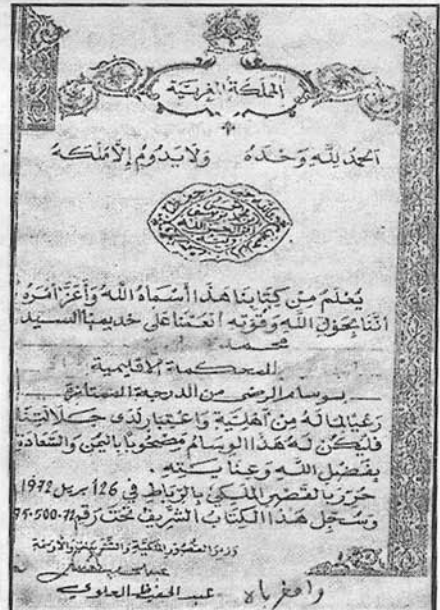 المملكة المغربية
الحمد لله وحده ولا يدوم إلا ملكه
يُعلم من كتابنا هذا أسماه الله وأعز أمره
أننا بحول الله وقوته أنعمنا على خديمنا السيد
محمد
المحكمة الاقليمية
بوسام الرضى من الدرجة الممتازة
رعيا لما له من أهلية واعتبار لدى جلالتنا
فليكن له هذا الوسام مصحوبا باليمن والسعادة
بفضل الله وعنايته.
حرر بالقصر الملكي بالرباط في 26 ابريل 1972
وسجل هذا الكتاب الشريف تحت رقم
وزير القصور الملكية والتشريفات والأوسمة
عبد الحفيظ العلوي